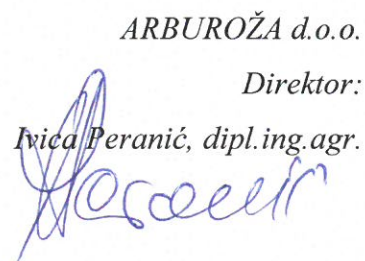 ARBUROŽA d.o.o.
Direktor:
Ivica Peranić, dipl.ing.agr.